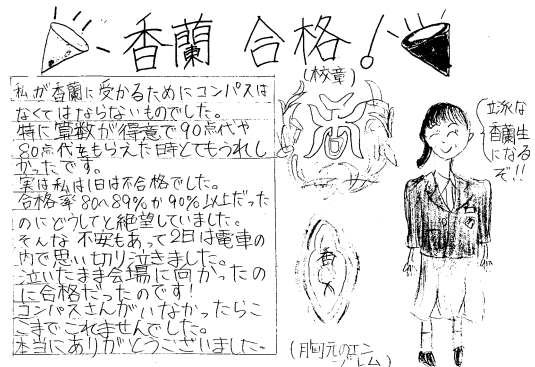 香蘭 合格!
私が香蘭に受かるためにコンパスは
なくてはならないものでした。
特に算数が得意で90点代や
80点代をもらえた時とてもうれし
かったです。
実は私は1日は不合格でした。
合格率80~89%か90%以上だった
のにどうしてと絶望していました。
そんな不安もあって2日は電車の
内で思い切り泣きました。
泣いたまま会場に向かったの
に合格だったのです!
コンパスさんがいなかったらこ
こまでこれませんでした。
本当にありがとうございました。
(校章)
(胸元のエン
ブレム)
立派な
香蘭生
になる
ぞ!!